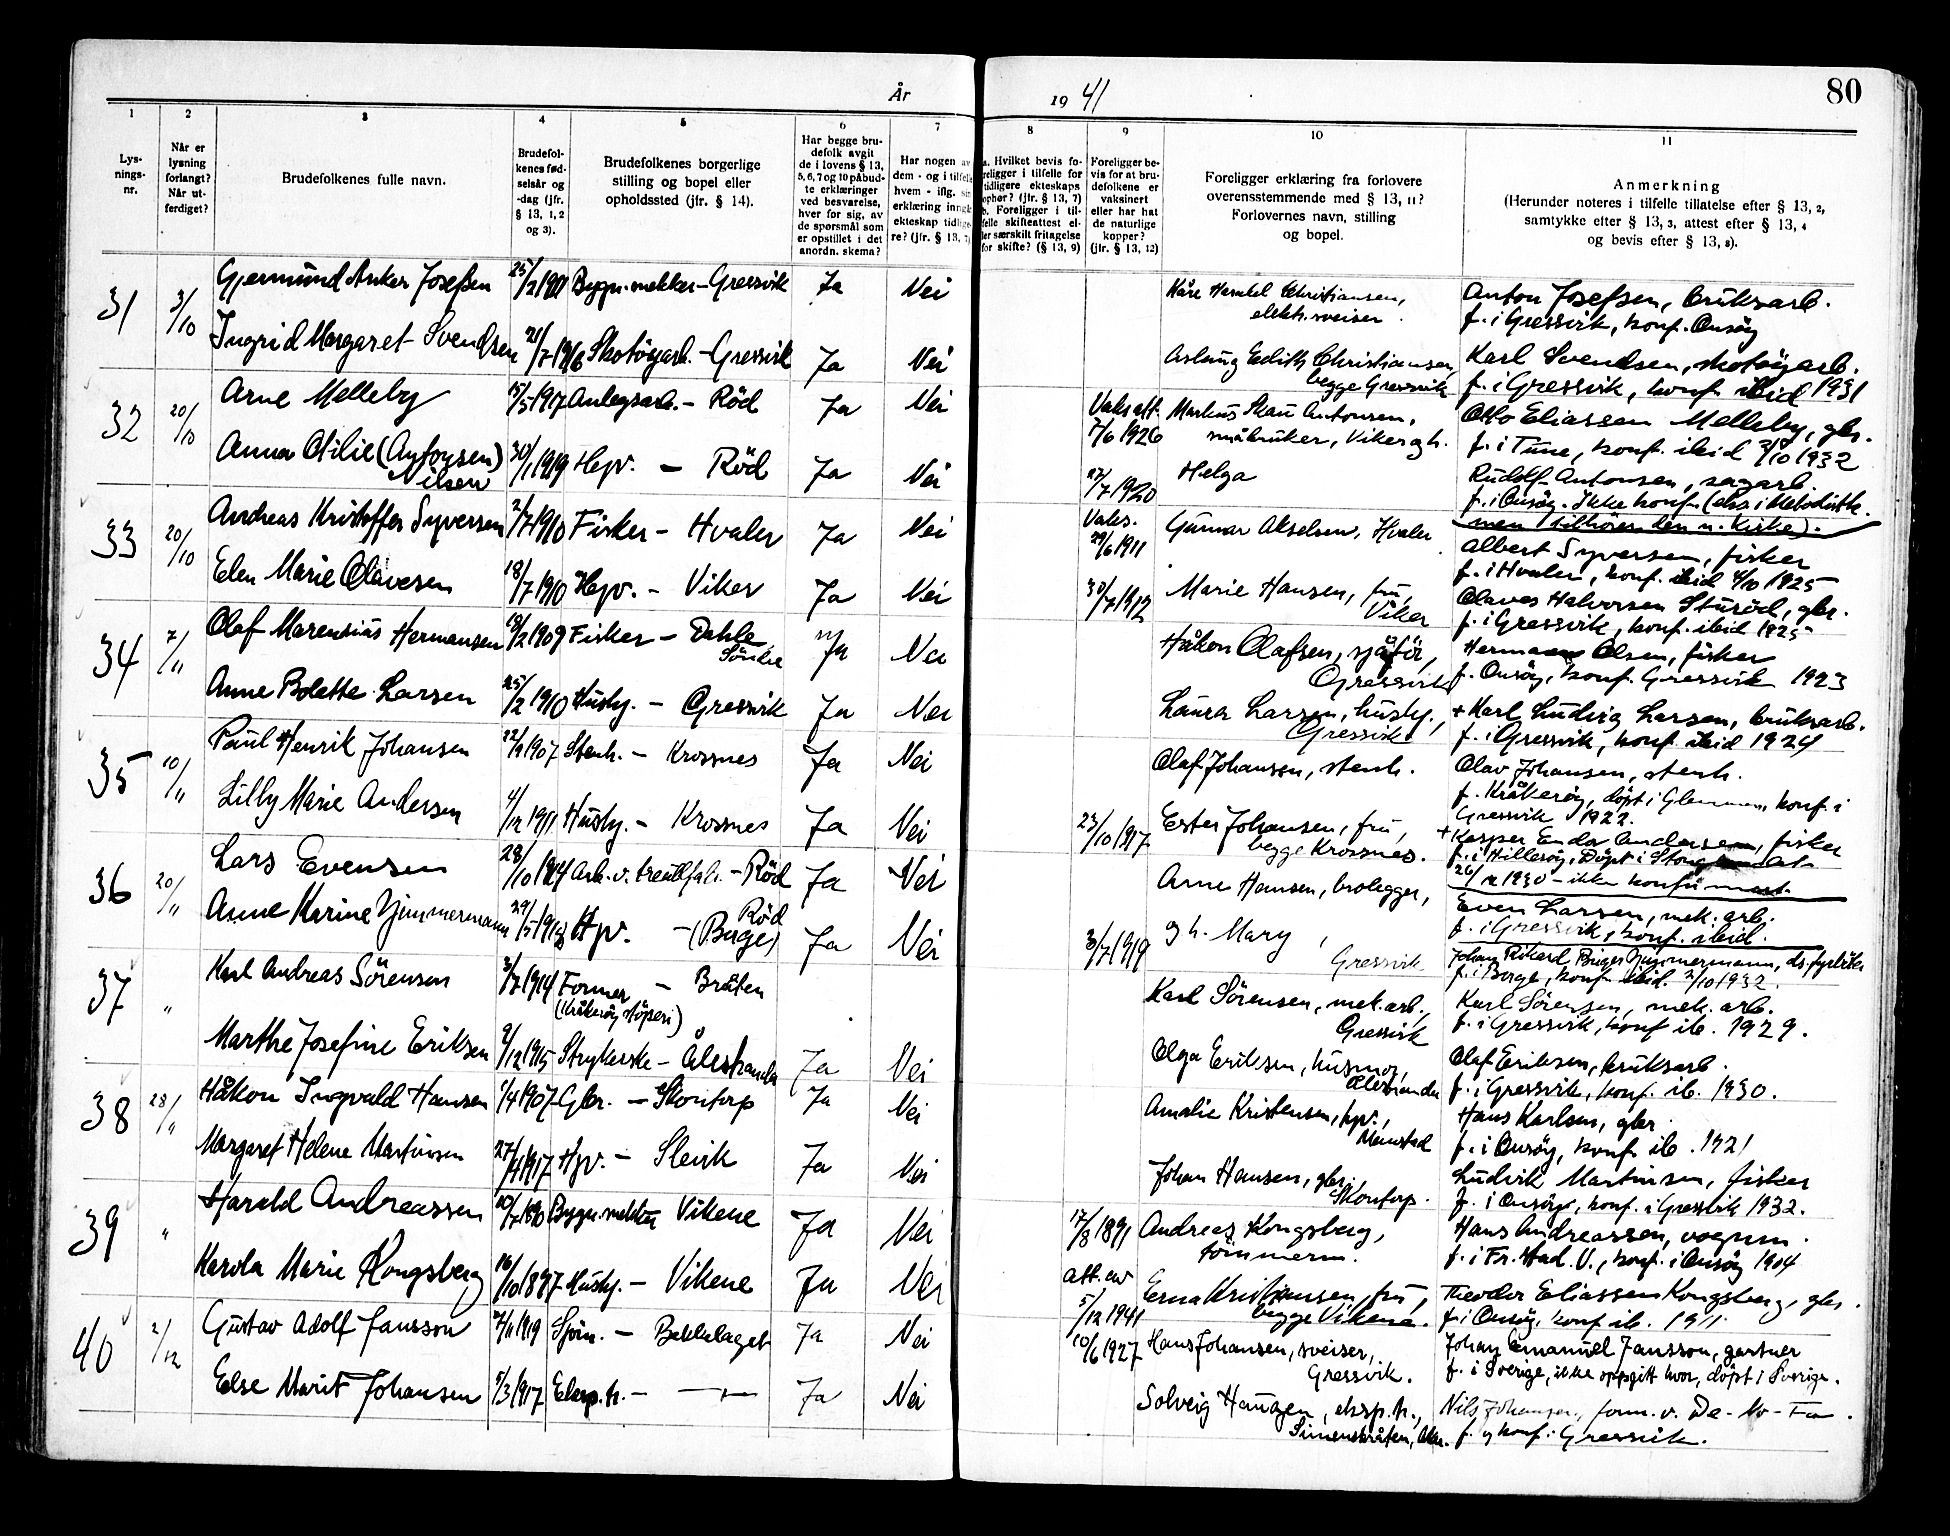 År 1941
80
1
2
3
4
5
6
7
8
9
10
11
Lys-
nings-
nr.
Når er
lysning
forlangt?
Når ut-
ferdiget?
Brudefolkenes fulle navn.
Brudefol-
kenes fød-
selsår og
-dag (jfr.
§ 13, 1, 2
og 3).
Brudefolkenes borgerlige
stilling og bopel eller
opholdssted (jfr. § 14).
Har begge bru-
defolk avgit
de i lovens § 13,
5, 6, 7 og 10 påbud-
te erklæringer
ved besvarelse,
hver for sig, av
de spørsmål som
er opstillet i det
anordn. skema?
Har nogen av
dem - og i tilfelle
hvem - iflg. sin
erklæring inngå
ekteskap tidlige-
re? (jfr. § 13, 7)
a. Hvilket bevis fo-
religger i tilfelle for
tidligere ekteskaps
ophør? (jfr. § 13, 7)
b. Foreligger i til-
felle skifteattest el-
ler særskilt fritagelse
for skifte? (§ 13, 9)
Foreligger be-
vis for at bru-
defolkene er
vaksinert
eller har hat
de naturlige
kopper?
(jfr. § 13, 12)
Foreligger erklæring fra forlovere
overensstemmende med § 13, 11?
Forlovernes navn, stilling
og bopel.
Anmerkning
(Herunder noteres i tilfelle tillatelse efter § 13, 2,
samtykke efter § 13, 3, attest efter § 13, 4
og bevis efter § 13, 8).
31 3/10 Gjermund Anker Josefsen Bygn.mekker - Gressvik Ja Nei
Kåre Harald Christiansen,
elektr.sveiser
Anton Josefsen, bruksarb.
f. i Gressvik, konf. Onsøy
Ingrid Margaret Svendsen 21/7 1916 Skotøyarb. - Gressvik Ja Nei
Aslaug Edith Christiansen,
begge Gressvik
Karl Svendsen, skotøyarb.
f. i Gressvik, konf. ibid 1931
32 20/10 Arne Melleby 15/5 1917 Anlegsarb. - Rød Ja Nei
Vaks.att.
7/6 1926
Markus Skau Antonsen,
småbruker, Viker gh.
Otto Eliassen Melleby, gbr.
f. i Tune, konf. ibid 2/10 1932
Anna Otilie (Antonsen)
Nilsen
30/1 1919 Hpv. - Rød Ja Nei
17/7 1920
Helga
Rudolf Antonsen, sagarb.
f. i Onsøy. Ikke konf. (døs. i Metodistk.
men tilhører den n. kirke).
33 20/10 Andreas Kristoffer Syversen 2/7 1910 Fisker - Hvaler Ja Nei
Vaks.
29/6 1911
Gunnar Akselsen, Hvaler
Albert Syversen, fisker
f. i Hvaler, konf. ibid 4/10 1925
Elen Marie Olavesen 18/7 1910 Hpv. - Viker Ja Nei
30/7 1912
Marie Hansen, fru,
Viker
Olaves Halvorsen Stusød, gbr.
f. i Gressvik, konf. ibid 1925
34 7/11 Olaf Marensius Hermansen 18/2 1909 Fisker - Dahle
Søndre
Ja Nei
Håkon Olafsen, sjåfør,
Gressvik
Hermann Olsen, fisker
f. Onsøy, konf. Gressvik 1923
Anne Bolette Larsen 25/2 1910 Husby. - Gressvik Ja Nei
Laura Larsen, husby.,
Gressvik
+ Karl Ludvig Larsen, bruksarb.
f. i Gressvik, konf. ibid 1924
35 10/11 Paul Henrik Johansen 22/9 1907 Stenh. - Krossnes Ja Nei
Olaf Johansen, stenh.
Olav Johansen, stenh.
f. Kråkerøy, døpt i Glemmen, konf. i
Gressvik 1922.
Lilly Marie Andersen 4/12 1911 Husby. - Krossnes Ja Nei
23/10 1917
Ester Johansen, fru,
begge Krossnes.
+ Kasper Endor Andersen, fisker
f. i Hillesøy, Døpt i
26/12 1930 - ikke konfirmert.
36 20/11 Lars Evensen 28/10 1914 Arb. v. treullfab. - Rød Ja Nei
Arne Hansen, brolegger,
Even Larsen, mek. arb.
f. i Gressvik, konf. ibid.
Anne Karine Zimmermann 29/5 1918 Hpv. - Rød
(Berge)
Ja Nei
3/7 1919
gh. Mary,
Gressvik
Johan Rikard Birger Zimmermann, ds.fyrbøter
f. i Borge, konf. ibid. 2/10 1932.
37 " Karl Andreas Sørensen 3/7 1914 Former - Bråten
(Kråkerøy støperi)
Karl Sørensen, mek. arb.,
Gressvik
Karl Sørensen, mek. arb.
f. i Gressvik, konf. ib. 1929.
Marthe Josefine Eriksen 9/12 1915 Strykerske - Ålestranda Ja Nei
Olga Eriksen, husmor,
Ålestranda
Olaf Eriksen, bruksarb.
f. i Gressvik, konf. ib. 1930.
38 28/11 Håkon Ingvald Hansen 1/4 1907 Gbr. - Skontorp Ja Nei
Amalie Kristensen, hpv.,
Manstad
Hans Karlsen, gbr.
f. i Onsøy, konf. ib. 1921
Margaret Helene Martinsen 27/4 1917 Hpv. - Slevik Ja Nei
Johan Hansen, gbr.,
Skontorp.
Ludvik Martinsen, fisker
f. i Onsøy, konf. i Gressvik 1932.
39 " Harald Andreassen 10/7 1890 Bygn.mekker Vikene Ja Nei
17/8 1891
Andreas Kongsberg,
tømmerm.
Hans Andreassen, vognm.
f. i Fr.stad. V., konf. i Onsøy 1904
Karola Marie Kongsberg 16/10 1897 Husby. - Vikene Ja Nei
att. av
5/12 1941
Erna Kristiansen, fru,
begge Vikene.
Theodor Eliassen Kongsberg, gbr.
f. i Onsøy, konf. ib. 1911
40 2/12 Gustav Adolf Jansson 21/11 1919 Sjøm. - Bekkelaget Ja Nei
10/6 1927
Hans Johansen, sveiser,
Gressvik.
Johan Emanuel Jansson, gartner
f. i Sverige, ikke oppgitt hvor, døpt i Sverige.
Else Marit Johansen 5/3 1917 Eksp.h. - — " — Ja Nei
Solveig Haugen, eksp.h.,
Simensbråten, Aker.
Nils Johansen, form. v. De-No-Fa.
f. og konf. i Gressvik.